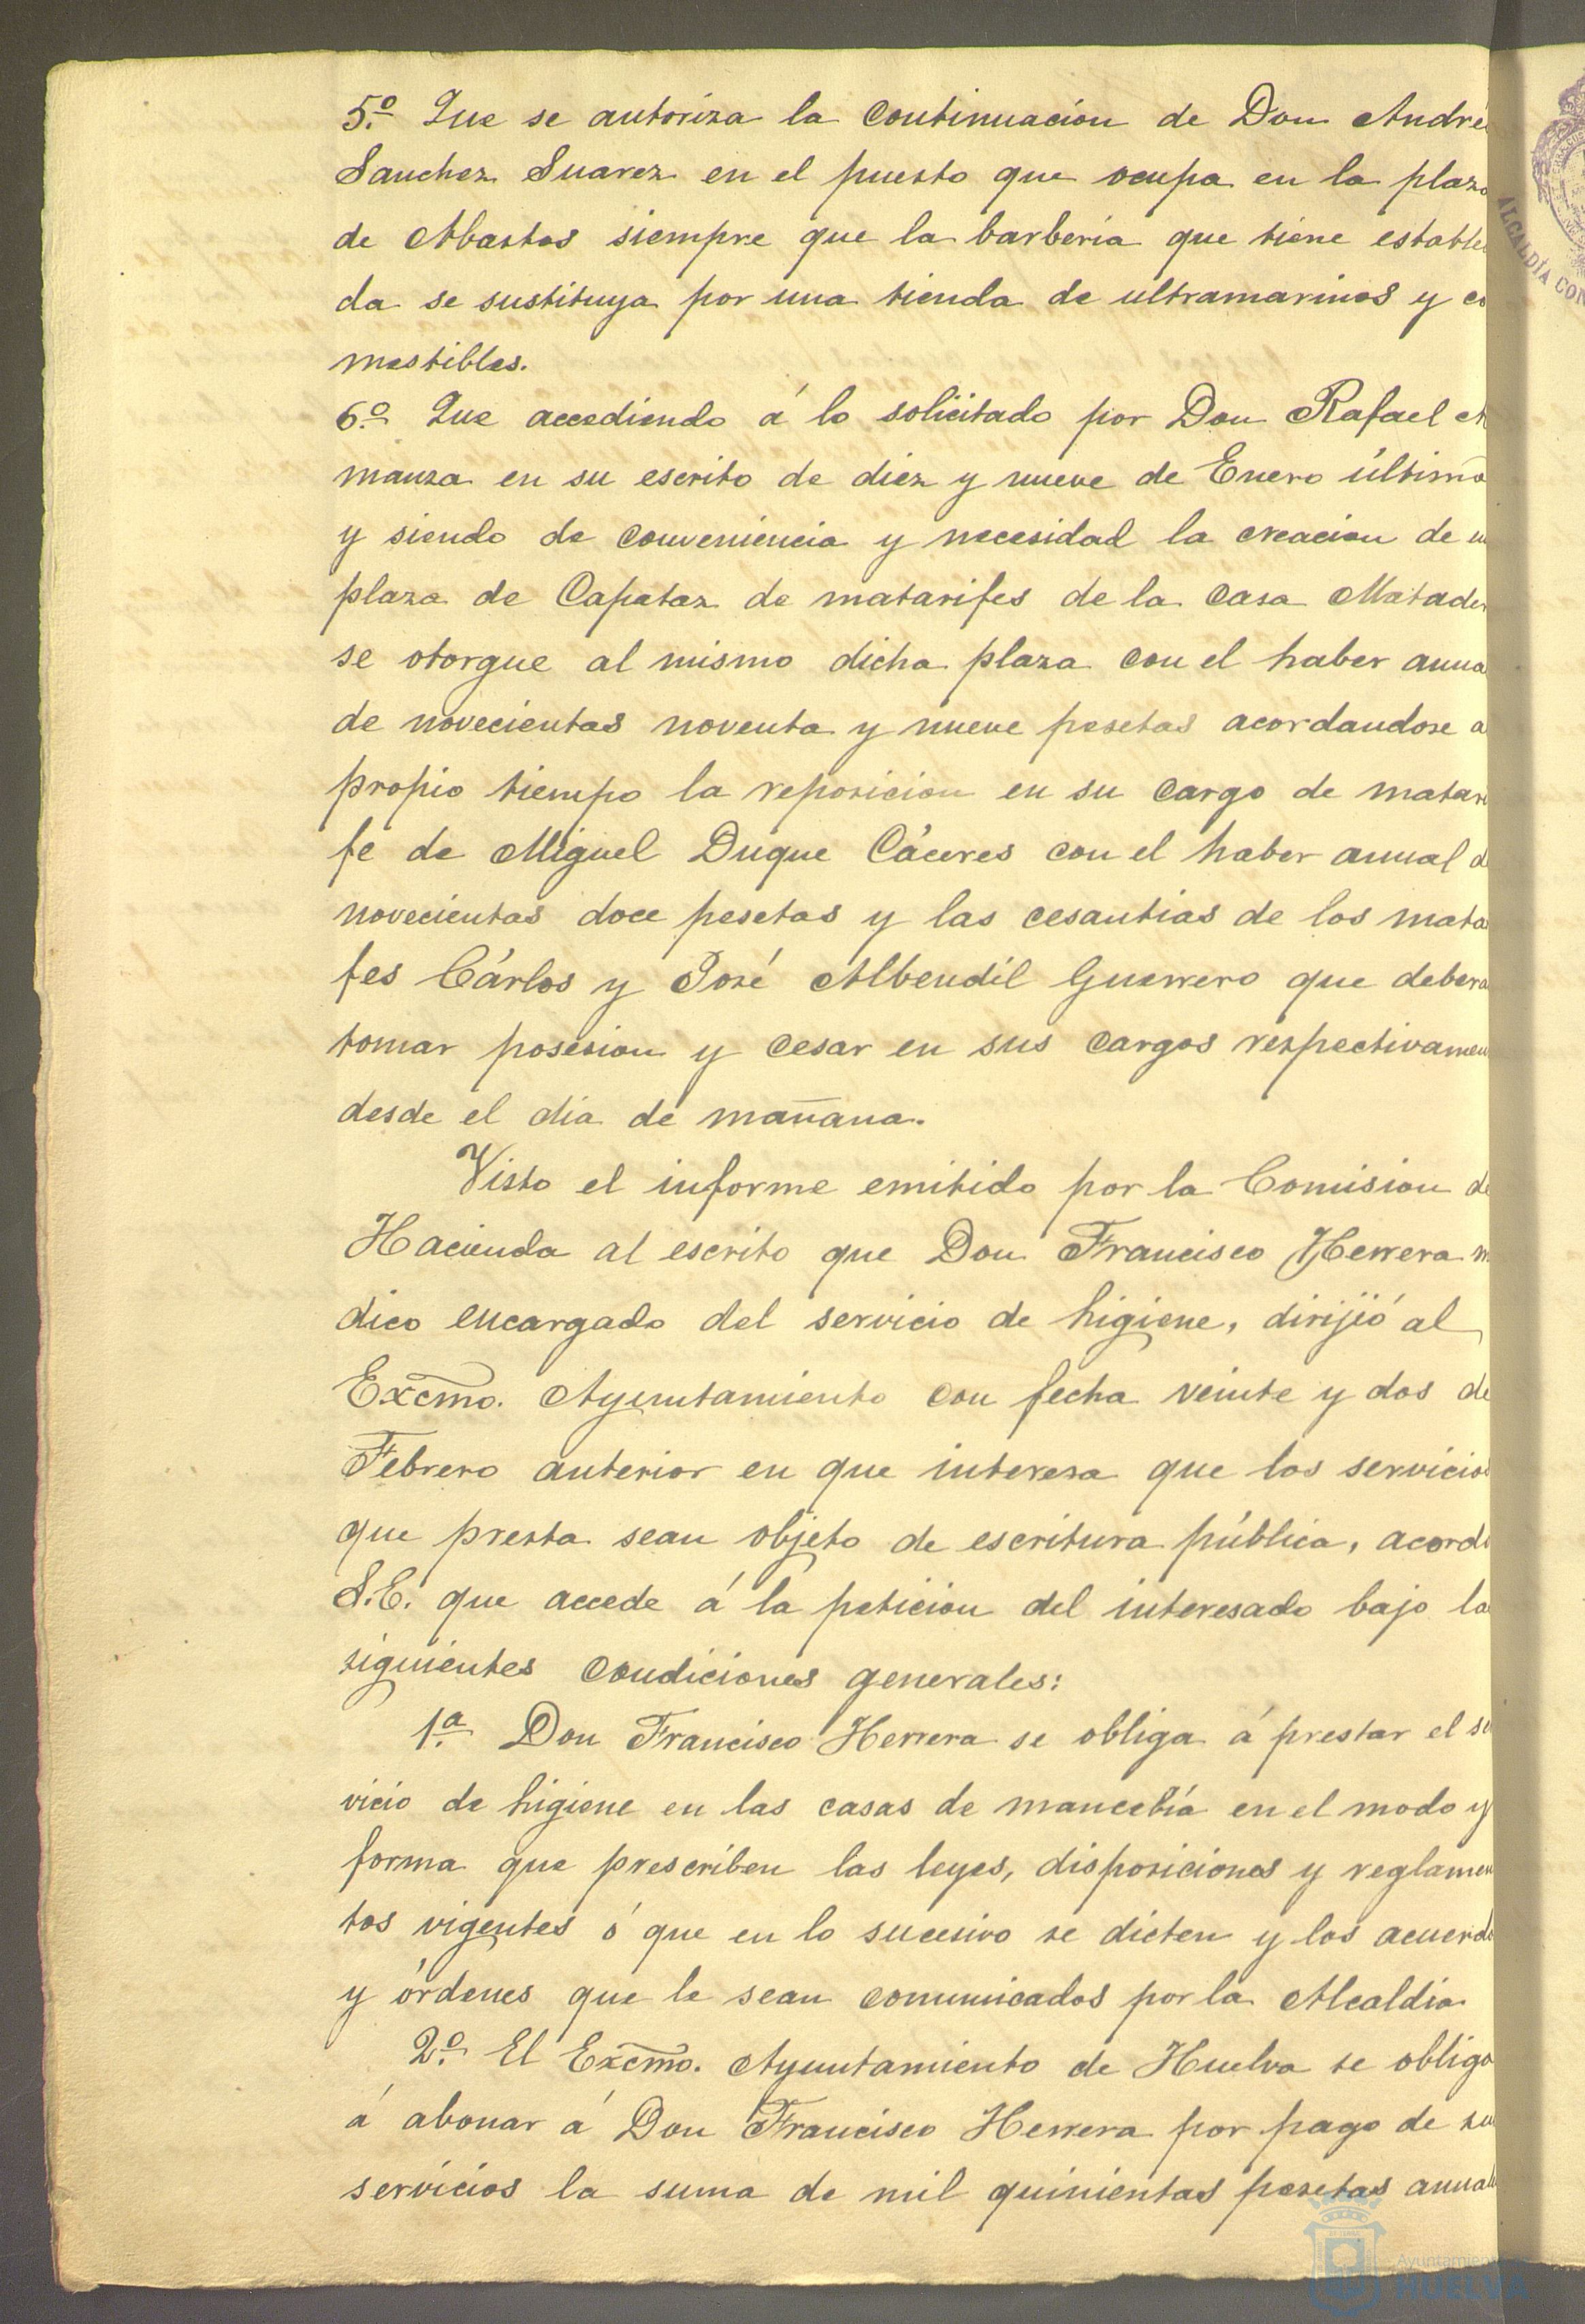 5.º Que se autoriza la continuación de Don André
Sanchez Suarez en el puesto que ocupa en la plaza
de Abastos siempre que la barberia que tiene estable
da se sustituya por una tienda de ultramarinos y co
mestibles.
6.º Que accediendo á lo solicitado por Don Rafael A
manza en su escrito de diez y nueve de Enero último
y siendo de conveniencia y necesidad la creacion de u
plaza de Capataz de matarifes de la Casa Matader
se otorgue al mismo dicha plaza con el haber anua
de novecientas noventa y nueve pesetas acordandose a
propio tiempo la reposicion en su cargo de matari
fe de Miguel Duque Cáceres con el haber anual d
novecientas doce pesetas y las cesantias de los mata
fes Cárlos y José Albendil Guerrero que debera
tomar posesion y cesar en sus cargos respectivamen
desde el dia de mañana.
Visto el informe emitido por la Comision de
Hacienda al escrito que Don Francisco Herrera m
dico encargado del servicio de higiene, dirijió al
Excmo. Ayuntamiento con fecha veinte y dos de
Febrero anterior en que interesa que los servicios
que presta sean objeto de escritura pública, acordó
S.E. que accede á la peticion del interesado bajo la
siguientes condiciones generales:
1.ª Don Francisco Herrera se obliga á prestar el se
vicio de higiene en las casas de mancebía en el modo y
forma que prescriben las leyes, disposiciones y reglamen
tos vigentes ó que en lo sucesivo se dicten y los acuerdo
y órdenes que le sean comunicados por la Alcaldia
2.º El Excmo. Ayuntamiento de Huelva se obliga
á abonar á Don Francisco Herrera por pago de su
servicios la suma de mil quinientas pesetas anual
ALCALDÍA CON
Ayuntamiento de
HUELVA